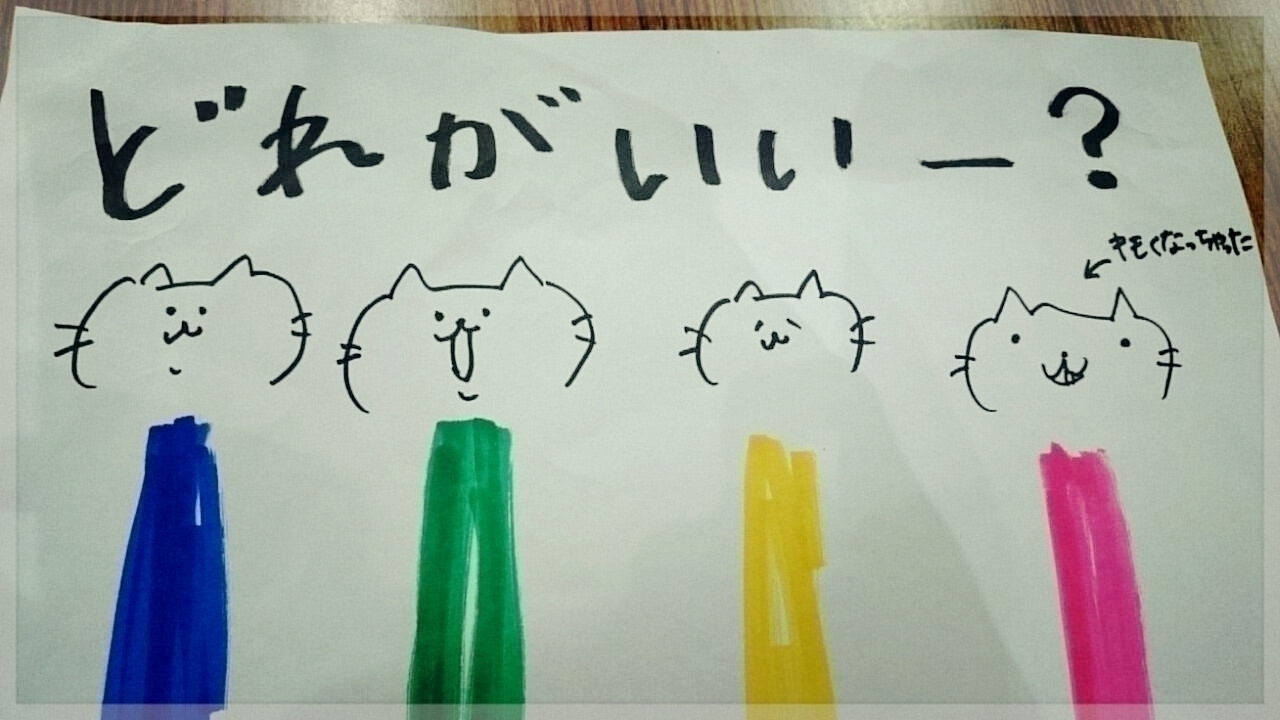 どれがいいー?
キモくなっちゃった